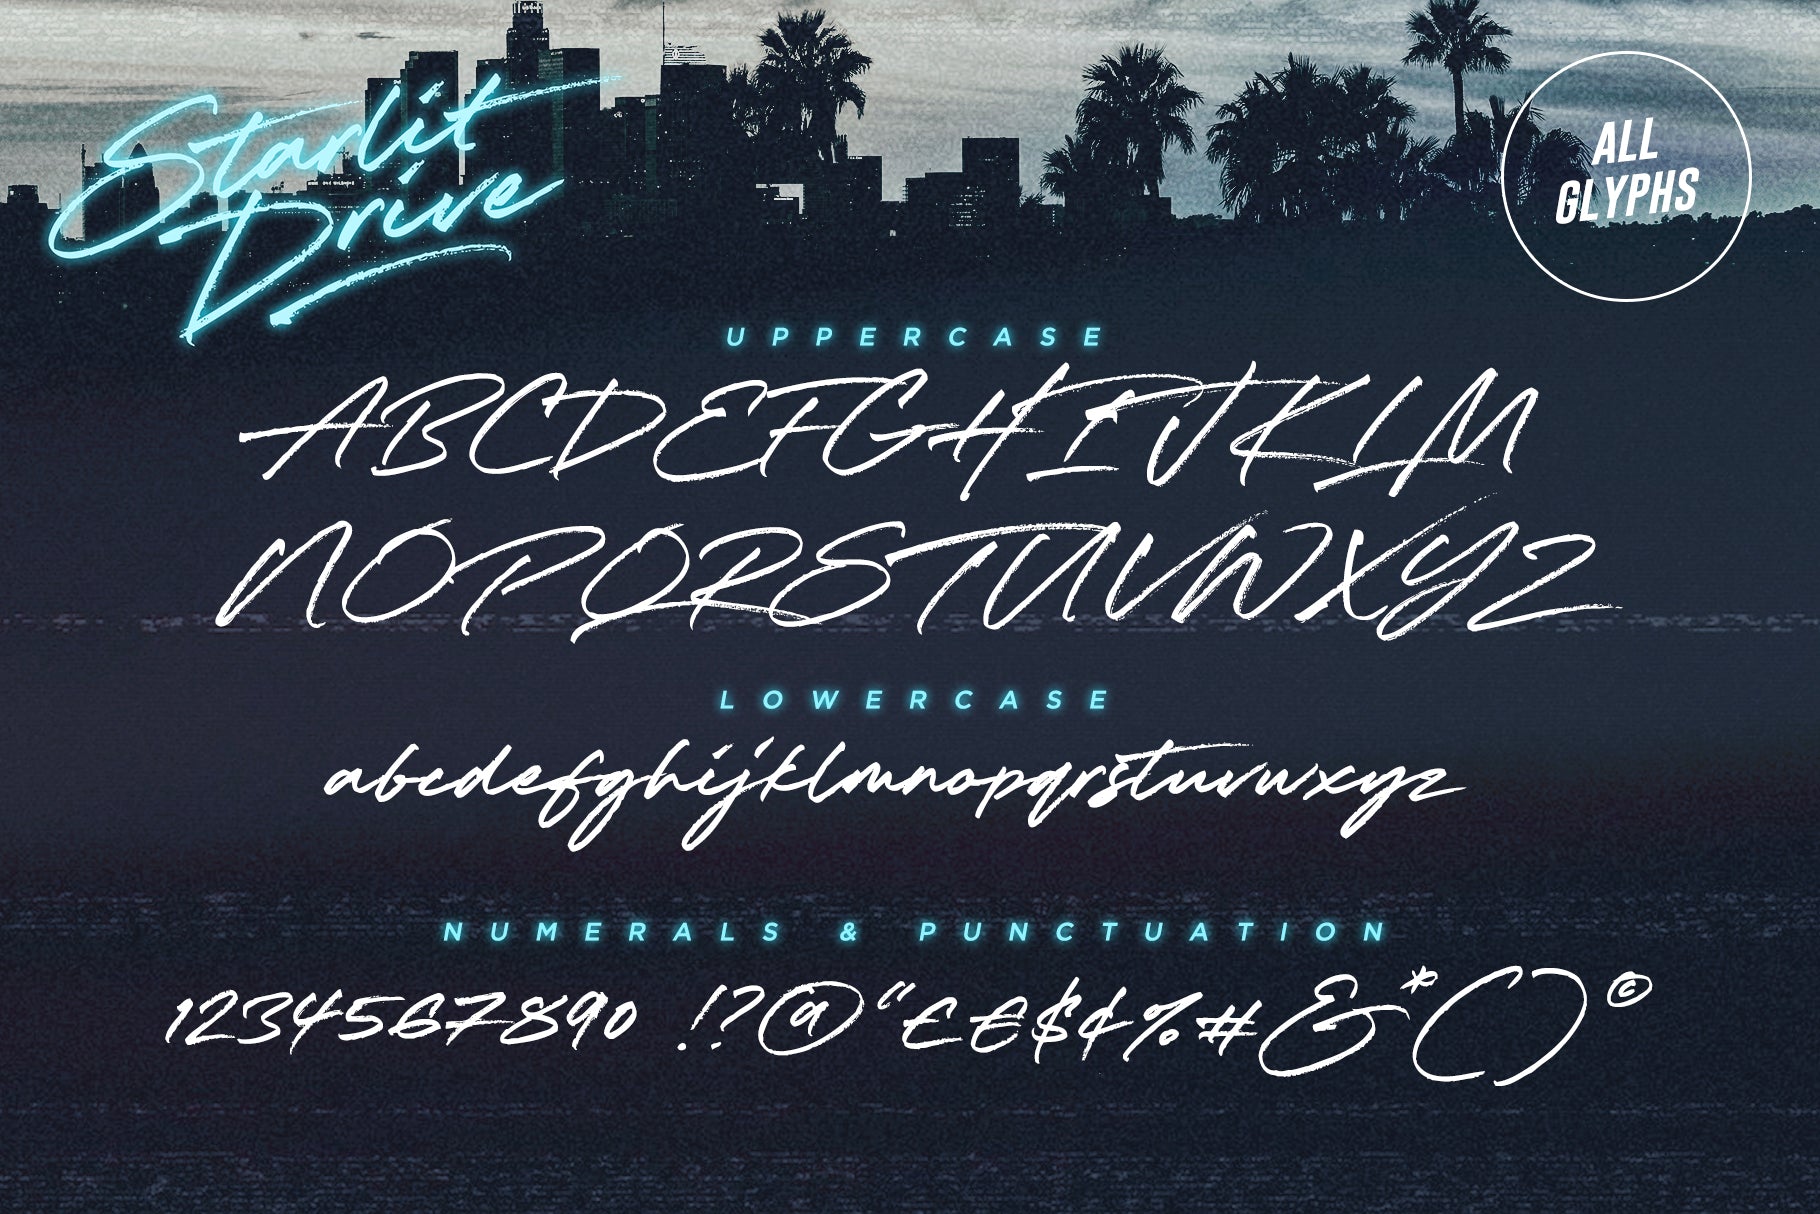 Starlit
Drive
ALL
GLYPHS
UPPERCASE
ABCDEFGHIJKLM
NOPQRSTUVWXYZ
LOWERCASE
abcdefghijklmnopqrstuvwxyz
NUMERALS & PUNCTUATION
1234567890 !?@“£€$¢%#&*()©